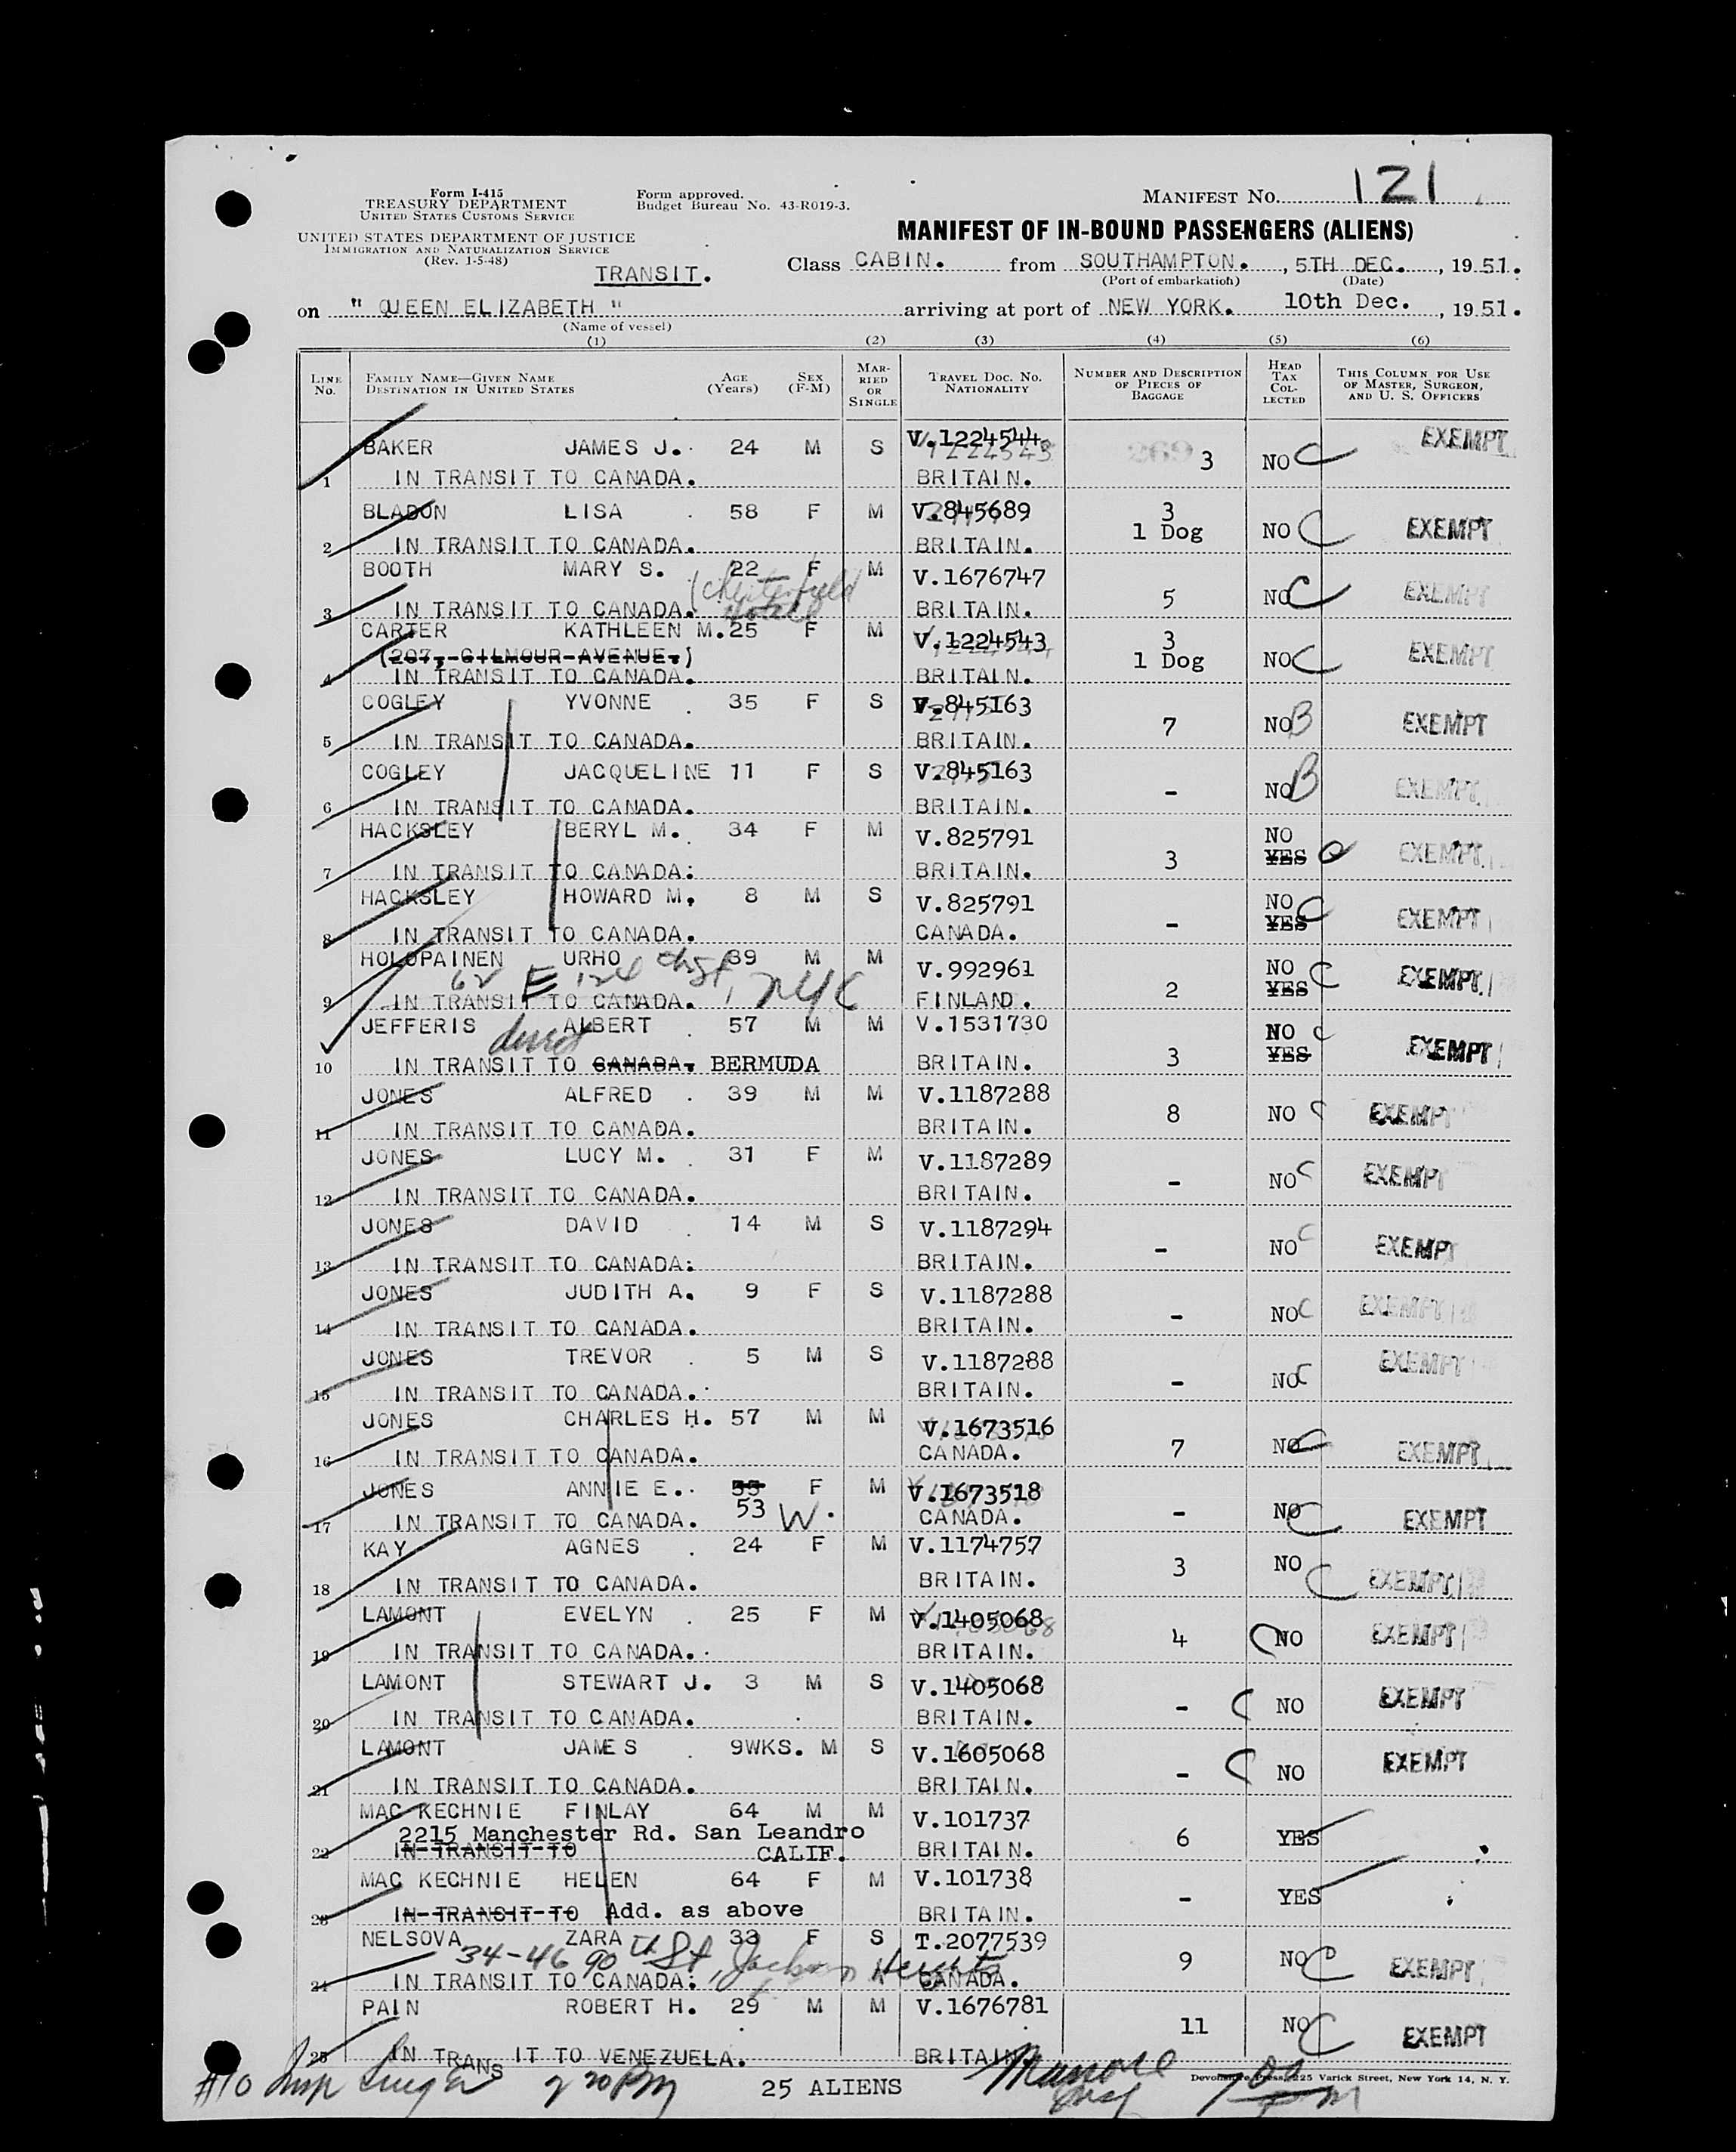 Form I-415
TREASURY DEPARTMENT
UNITED STATES CUSTOMS SERVICE
UNITED STATES DEPARTMENT OF JUSTICE
IMMIGRATION AND NATURALIZATION SERVICE
(Rev. 1-5-48)
Form approved.
Budget Bureau No. 43-R019-3.
MANIFEST NO. 121
MANIFEST OF IN-BOUND PASSENGERS (ALIENS)
TRANSIT.
Class CABIN. from SOUTHAMPTON. , 5TH DEC. , 1951.
(Port of embarkation) (Date)
on " QUEEN ELIZABETH " arriving at port of NEW YORK. 10th Dec. , 1951.
(Name of vessel)
(1) (2) (3) (4) (5) (6)
LINE No. FAMILY NAME—GIVEN NAME DESTINATION IN UNITED STATES AGE (YEARS) SEX (F-M) MARRIED OR SINGLE TRAVEL DOC. NO. NATIONALITY NUMBER AND DESCRIPTION OF PIECES OF BAGGAGE HEAD TAX COLLECTED THIS COLUMN FOR USE OF MASTER, SURGEON, AND U. S. OFFICERS
BAKER JAMES J. 24 M S V.1224544 3 NO C EXEMPT
1 IN TRANSIT TO CANADA. BRITAIN.
BLADON LISA 58 F M V.845689 3 1 Dog NO C EXEMPT
2 IN TRANSIT TO CANADA. BRITAIN.
BOOTH MARY S. 22 F M V.1676747 5 NO C EXEMPT
3 IN TRANSIT TO CANADA. (Chesterfield Hotel BRITAIN.
CARTER KATHLEEN M. 25 F M V.1224543 3 1 Dog NO C EXEMPT
(207, GILMOUR AVENUE.)
4 IN TRANSIT TO CANADA. BRITAIN.
COGLEY YVONNE 35 F S V.845163 7 NO B EXEMPT
5 IN TRANSIT TO CANADA. BRITAIN.
COGLEY JACQUELINE 11 F S V.845163 - NO B EXEMPT
6 IN TRANSIT TO CANADA. BRITAIN.
HACKSLEY BERYL M. 34 F M V.825791 3 NO YES C EXEMPT
7 IN TRANSIT TO CANADA. BRITAIN.
HACKSLEY HOWARD M. 8 M S V.825791 - NO YES C EXEMPT
8 IN TRANSIT TO CANADA. CANADA.
HOLOPAINEN URHO 39 M M V.992961 2 NO YES C EXEMPT
62 E 124 St, NYC
9 IN TRANSIT TO CANADA. FINLAND.
JEFFERIS ALBERT 57 M M V.1531730 3 NO YES C EXEMPT
direct
10 IN TRANSIT TO CANADA. BERMUDA BRITAIN.
JONES ALFRED 39 M M V.1187288 8 NO C EXEMPT
11 IN TRANSIT TO CANADA. BRITAIN.
JONES LUCY M. 31 F M V.1187289 - NO C EXEMPT
12 IN TRANSIT TO CANADA. BRITAIN.
JONES DAVID 14 M S V.1187294 - NO C EXEMPT
13 IN TRANSIT TO CANADA. BRITAIN.
JONES JUDITH A. 9 F S V.1187288 - NO C EXEMPT
14 IN TRANSIT TO CANADA. BRITAIN.
JONES TREVOR 5 M S V.1187288 - NO C EXEMPT
15 IN TRANSIT TO CANADA. BRITAIN.
JONES CHARLES H. 57 M M V.1673516 7 NO C EXEMPT
16 IN TRANSIT TO CANADA. CANADA.
JONES ANNIE E. 53 F M V.1673518 - NO C EXEMPT
17 IN TRANSIT TO CANADA. W. CANADA.
KAY AGNES 24 F M V.1174757 3 NO C EXEMPT
18 IN TRANSIT TO CANADA. BRITAIN.
LAMONT EVELYN 25 F M V.1405068 4 C NO EXEMPT
19 IN TRANSIT TO CANADA. BRITAIN.
LAMONT STEWART J. 3 M S V.1405068 - C NO EXEMPT
20 IN TRANSIT TO CANADA. BRITAIN.
LAMONT JAMES 9WKS. M S V.1605068 - C NO EXEMPT
21 IN TRANSIT TO CANADA. BRITAIN.
MAC KECHNIE FINLAY 64 M M V.101737 6 YES
2215 Manchester Rd. San Leandro
22 IN TRANSIT TO CALIF. BRITAIN.
MAC KECHNIE HELEN 64 F M V.101738 - YES
23 IN TRANSIT TO Add. as above BRITAIN.
NELSOVA ZARA 33 F S T.2077539 9 NO C EXEMPT
34-46 90th St, Jackson Heights
24 IN TRANSIT TO CANADA. CANADA.
PAIN ROBERT H. 29 M M V.1676781 11 NO C EXEMPT
25 IN TRANSIT TO VENEZUELA. BRITAIN.
#10 Insp 25 ALIENS
Devonshire Press, 225 Varick Street, New York 14, N. Y.